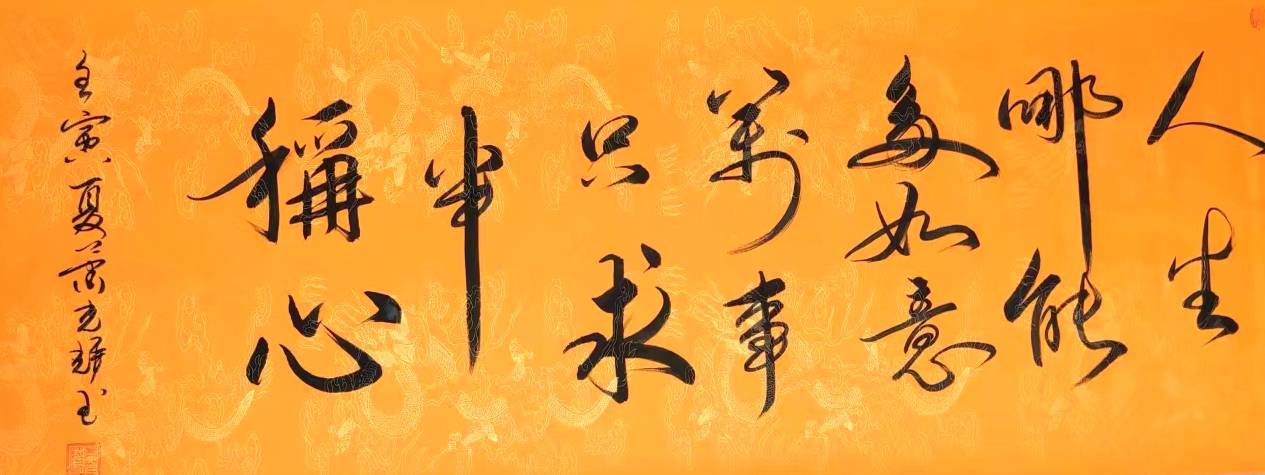 人生
哪能
多如意
萬事
只求
半
稱心
壬寅夏 书